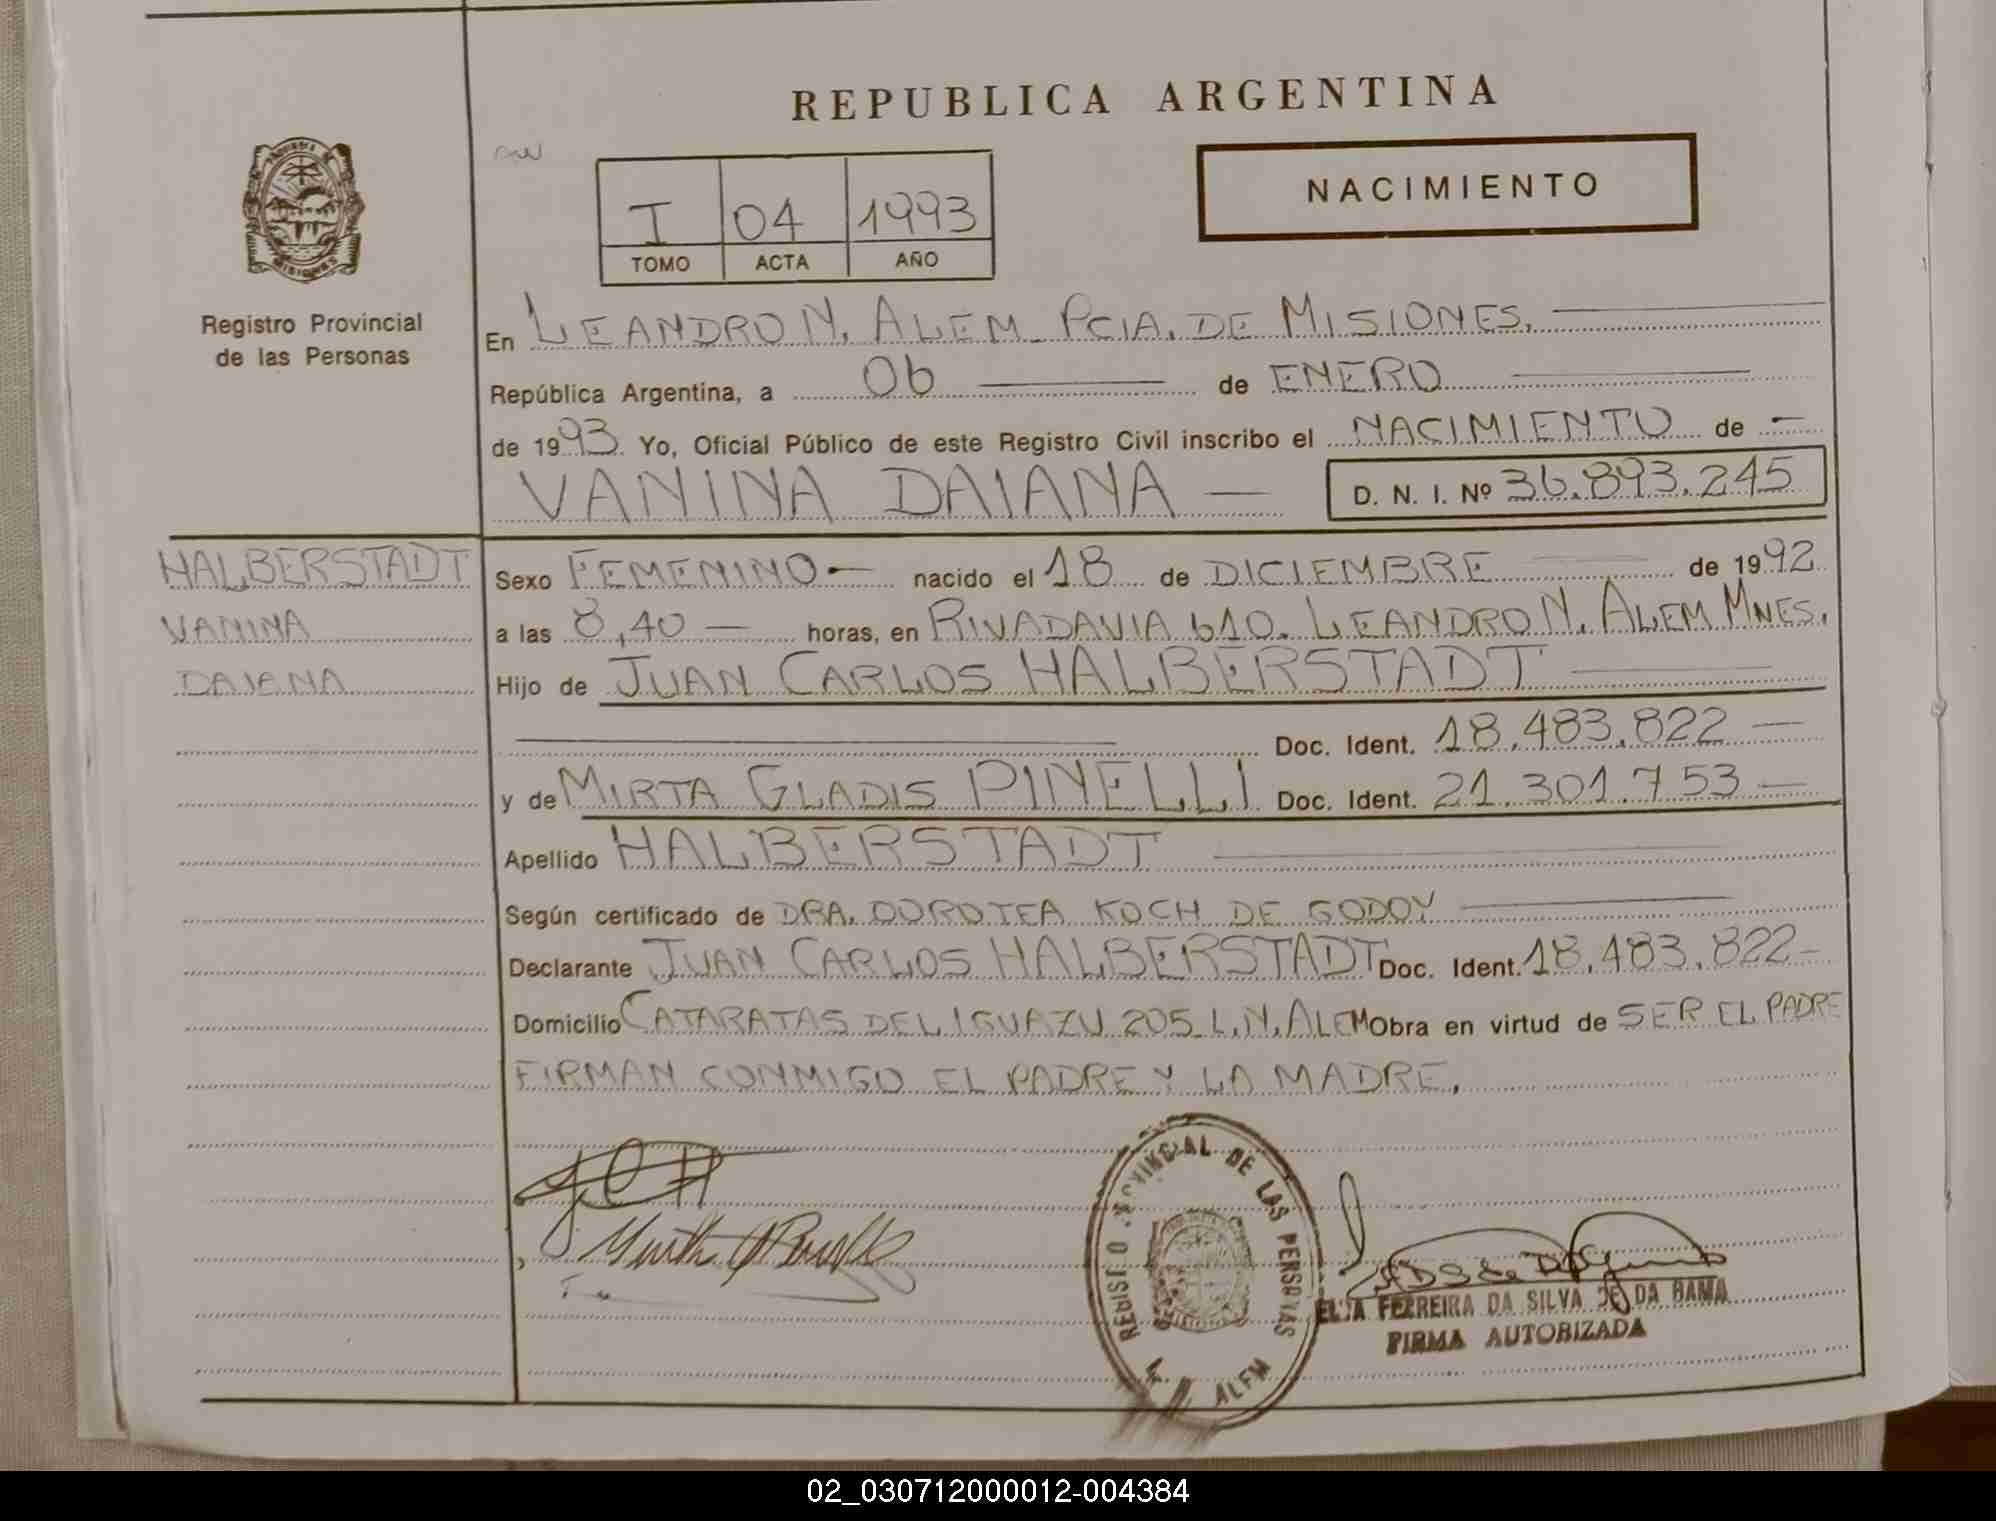 REPUBLICA ARGENTINA
NACIMIENTO
I 04 1993
TOMO ACTA AÑO
PROVINCIA DE
MISIONES
Registro Provincial
de las Personas
En LEANDRO N. ALEM PCIA. DE MISIONES.
República Argentina, a 06 de ENERO
de 1993. Yo, Oficial Público de este Registro Civil inscribo el NACIMIENTO de
VANINA DAIANA D. N. I. Nº 36.893.245
HALBERSTADT
VANINA
DAIANA
Sexo FEMENINO nacido el 18 de DICIEMBRE de 1992
a las 8,40 horas, en RIVADAVIA 610. LEANDRO N. ALEM MNES.
Hijo de JUAN CARLOS HALBERSTADT
Doc. Ident. 18.483.822
y de MIRTA GLADIS PINELLI Doc. Ident. 21.301.753
Apellido HALBERSTADT
Según certificado de DRA. DOROTEA KOCH DE GODOY
Declarante JUAN CARLOS HALBERSTADT Doc. Ident. 18.483.822
Domicilio CATARATAS DEL IGUAZU 205 L.N. ALEM Obra en virtud de SER EL PADRE
FIRMAN CONMIGO EL PADRE Y LA MADRE.
REGISTRO PROVINCIAL DE LAS PERSONAS
L. N. ALEM
ELSA FERREIRA DA SILVA DE DA BAMA
FIRMA AUTORIZADA
02_030712000012-004384